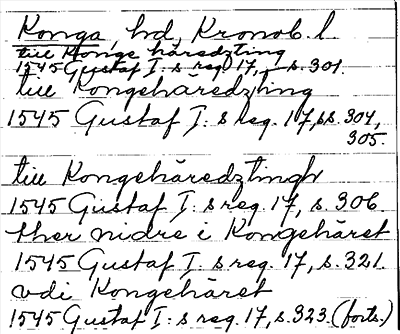 Konga, hd, Kronob. l.
till Konge häredzting
1545 Gustaf I: s reg. 17, s. 301.
till Kongehäredzting
1545 Gustaf I: s reg. 17, ss. 304,
305.
till Kongehäredztingh
1545 Gustaf I: s reg. 17, s. 306
ther nidre i Kongehäret
1545 Gustaf I: s reg. 17, s. 321.
vdi Kongehäret
1545 Gustaf I: s reg. 17, s. 323. (forts.)